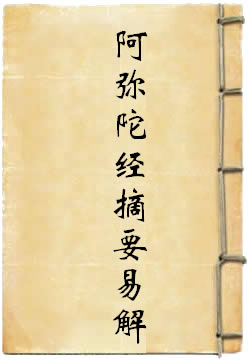 阿弥陀经摘要易解